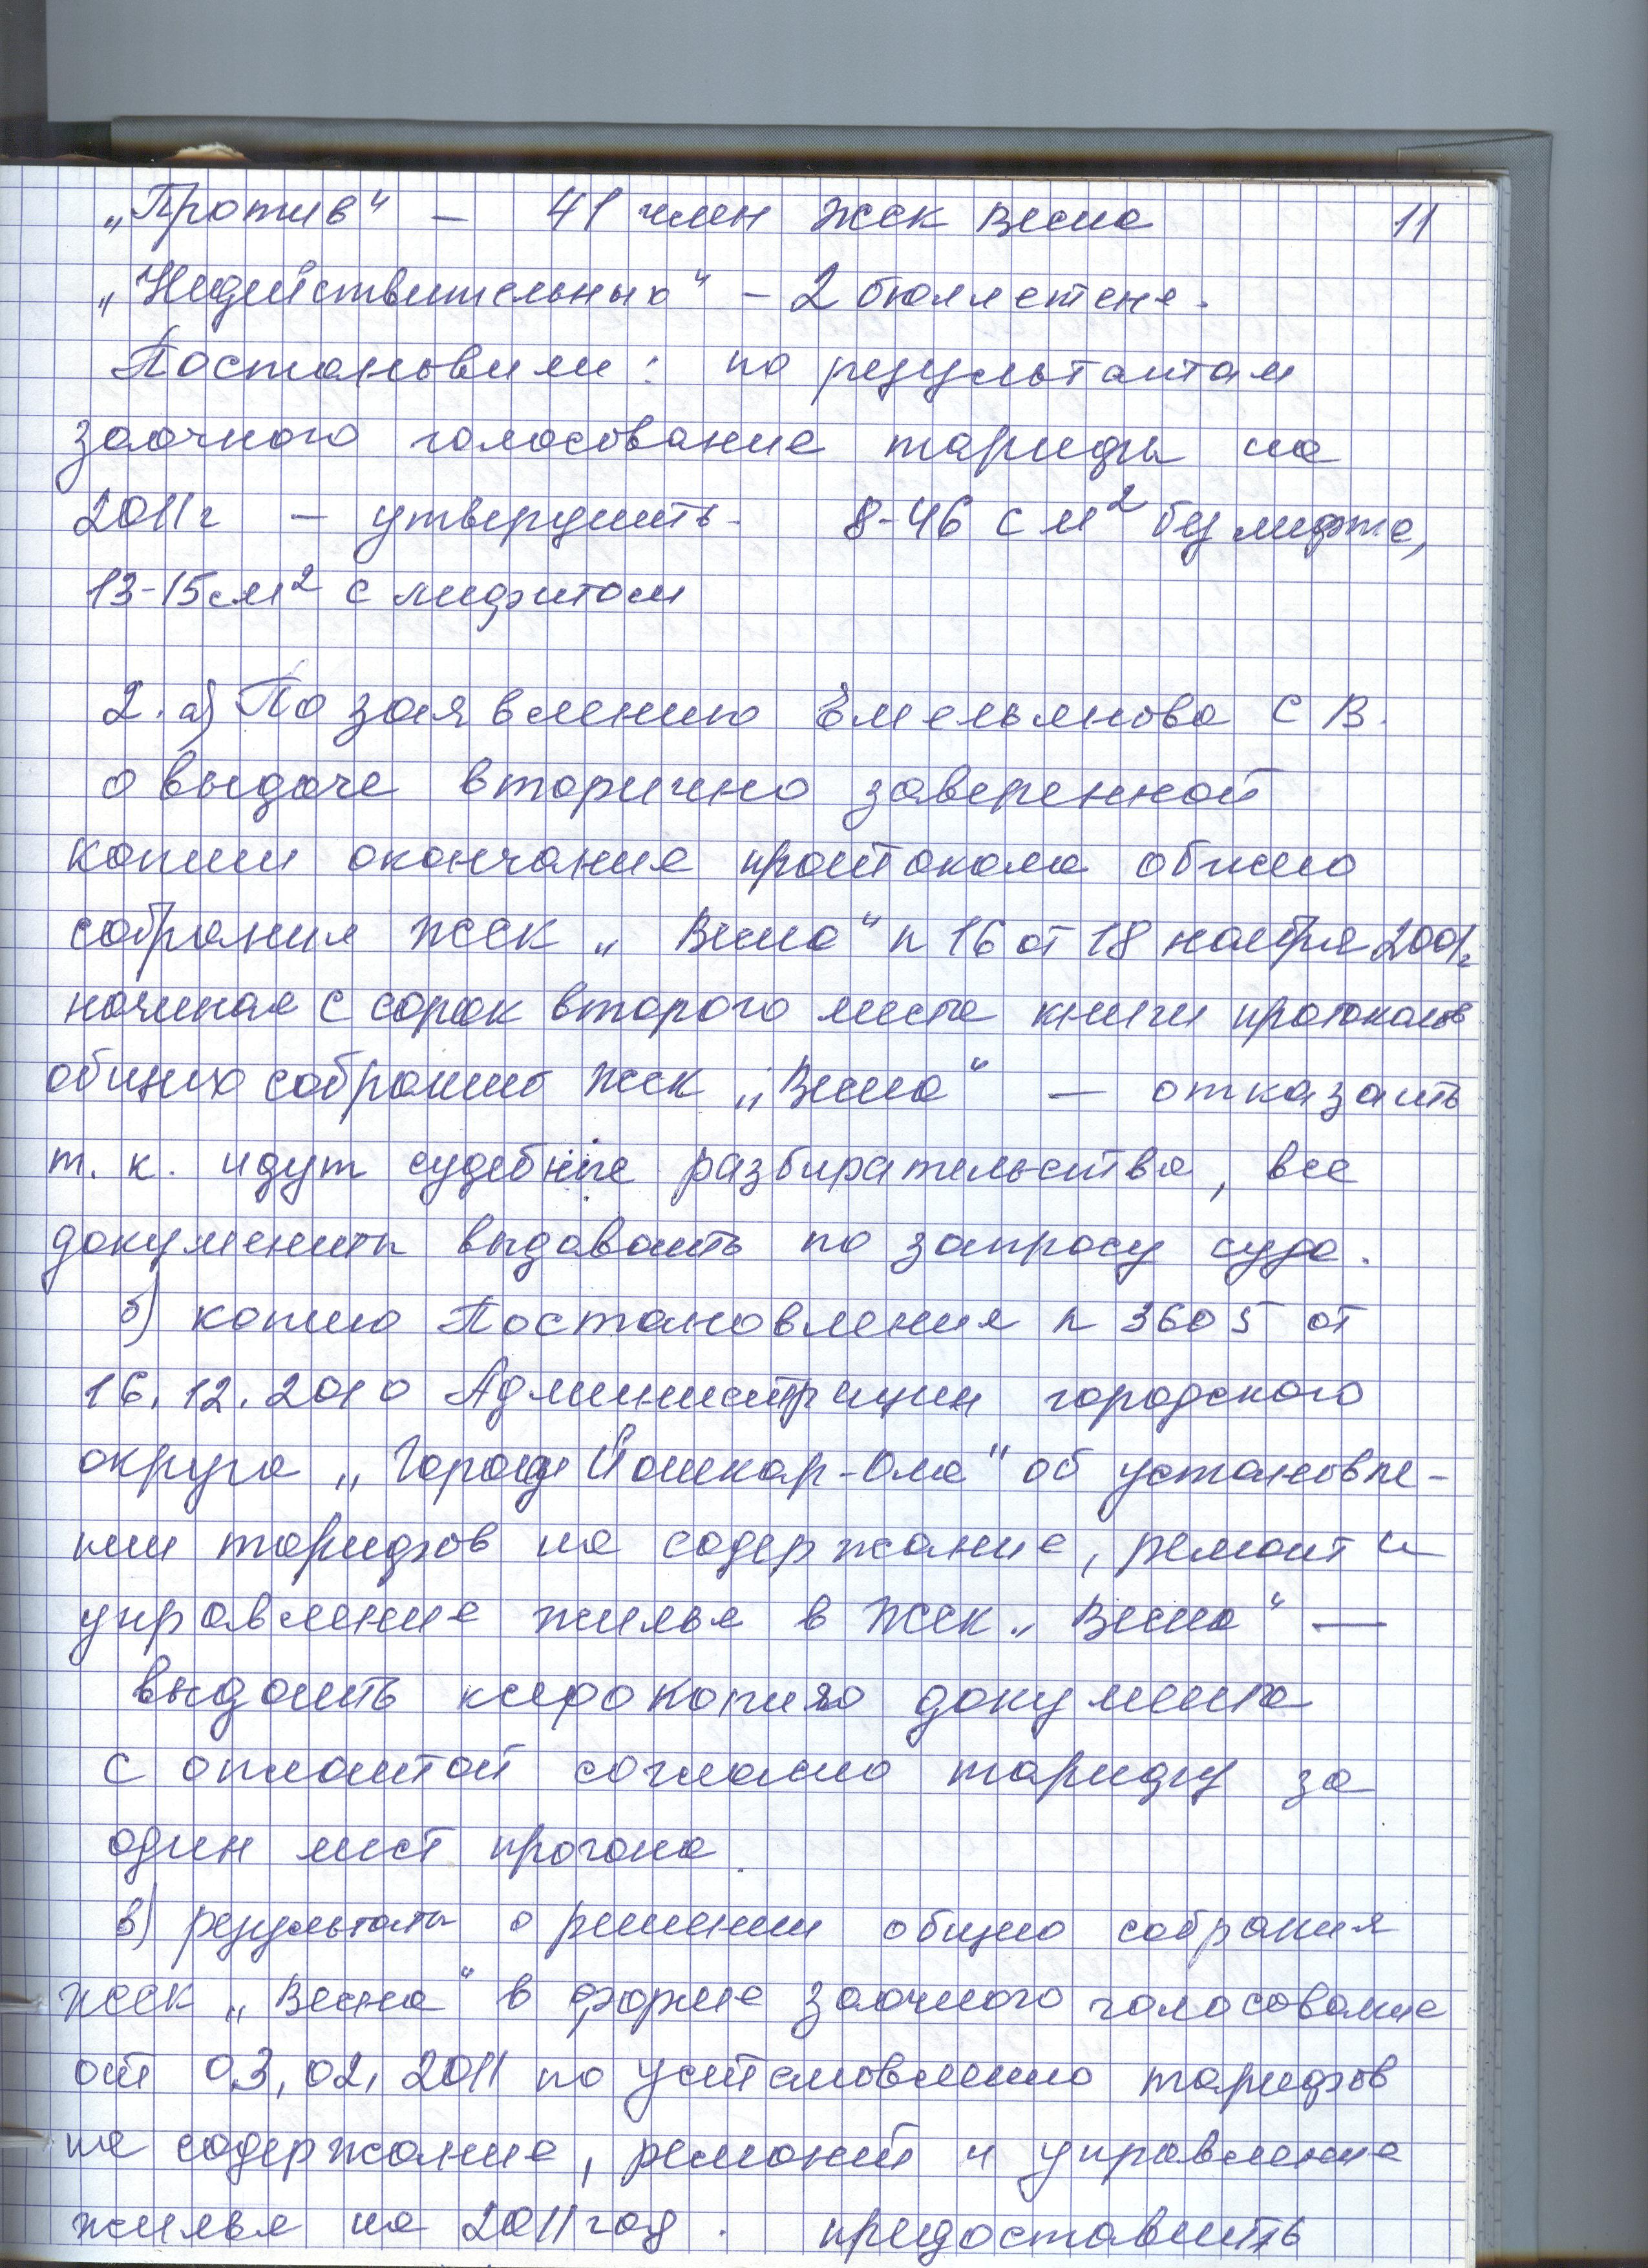 „Против“ — 41 член ЖСК Весна 11
„Недействительных“ — 2 бюллетеня.
Постановили: по результатам
заочного голосования тарифы на
2011г — утвердить. 8-46 с м² без лифта,
13-15 с м² с лифтом
2. а) По заявлению Емельянова С В.
о выдаче вторично заверенной
копии окончания протокола общего
собрания ЖСК „Весна“ n 16 от 18 ноября 2001г.
начиная с сорок второго листа книги протоколов
общих собраний ЖСК „Весна“ — отказать
т. к. идут судебные разбирательства, все
документы выдавать по запросу суда.
б) копию Постановления n 3605 от
16.12.2010 Администрции городского
округа „Город Йошкар-Ола“ об установле-
нии тарифов на содержание, ремонт и
управление жилья в ЖСК „Весна“ —
выдать ксерокопию документа
с оплатой согласно тарифу за
один лист прогона.
в) результаты о решении общего собрания
ЖСК „Весна“ в форме заочного голосования
от 03.02.2011 по установлению тарифов
на содержание, ремонт и управление
жилья на 2011 год. предоставить